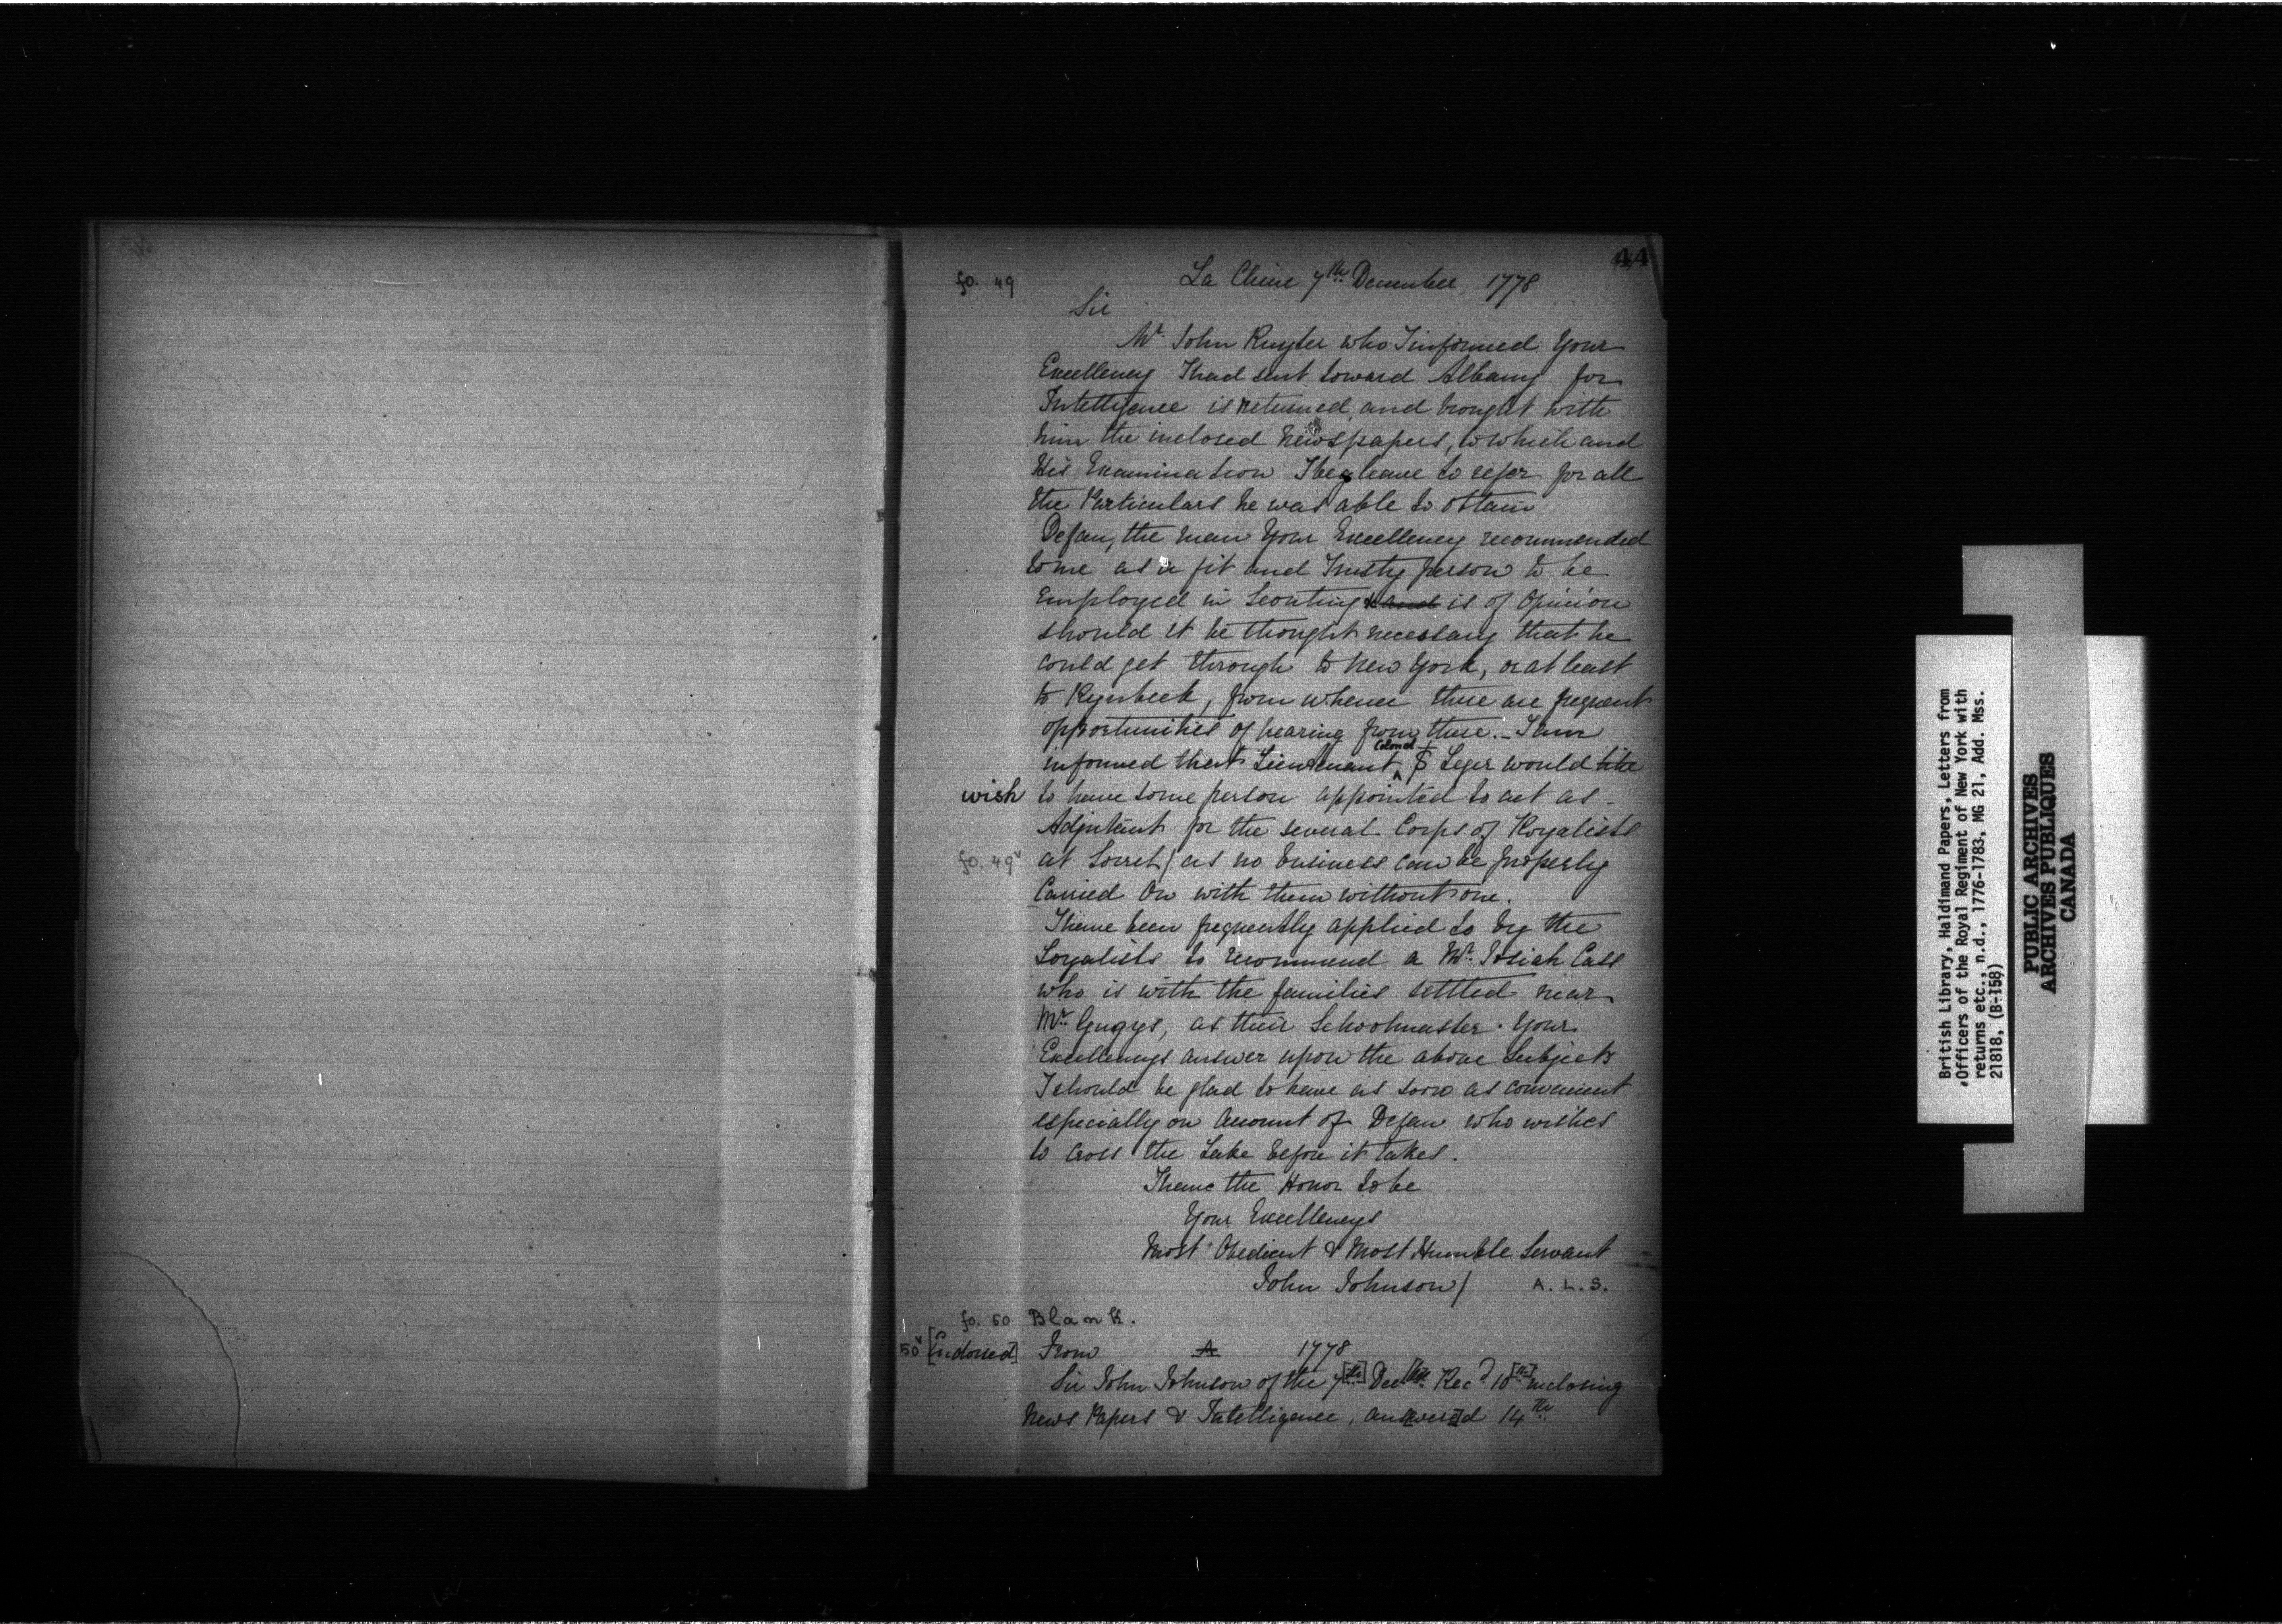 44
fo. 49
La Chine 7th December 1778
Sir
Mr. John Ruyter who I informed Your
Excellency I had sent toward Albany for
Intelligence is returned, and brought with
him the inclosed Newspapers, to which and
His Examination I beg leave to refer for all
the Particulars he was able to obtain
Dejan, the man Your Excellency recommended
to me as a fit and Trusty person to be
Employed in Scouting & and is of Opinion
should it be thought necessary that he
could get through to New York, or at least
to Rynbeek, from whence there are frequent
opportunities of hearing from there. - I am
informed that Lieutenant Colonel St Leger would like
wish to have some person appointed to act as -
Adjutant for the several Corps of Royalists
fo. 49v at Sorrel / as no business can be properly
Carried On with them without one.
I have been frequently applied to by the
Loyalists to recommend a Mr. Josiah Cass
who is with the families settled near
Mr. Gugys, as their Schoolmaster. Your
Excellencys answer upon the above Subjects
I should be glad to have as soon as convenient
especially on Account of Dejan who wishes
to cross the Lake before it takes.
I have the Honor to be
Your Excellencys
Most Obedient & Most Humble Servant
John Johnson / A. L. S.
fo. 50 Blank.
50v [Endorsed] From A 1778
Sir John Johnson of the 7[th] Dec[br] Recd 10[th] inclosing
News Papers & Intelligence, an[swere]d 14th
British Library, Haldimand Papers, Letters from
Officers of the Royal Regiment of New York with
returns etc., n.d., 1776-1783, MG 21, Add. Mss.
21818, (B-158)
PUBLIC ARCHIVES
ARCHIVES PUBLIQUES
CANADA